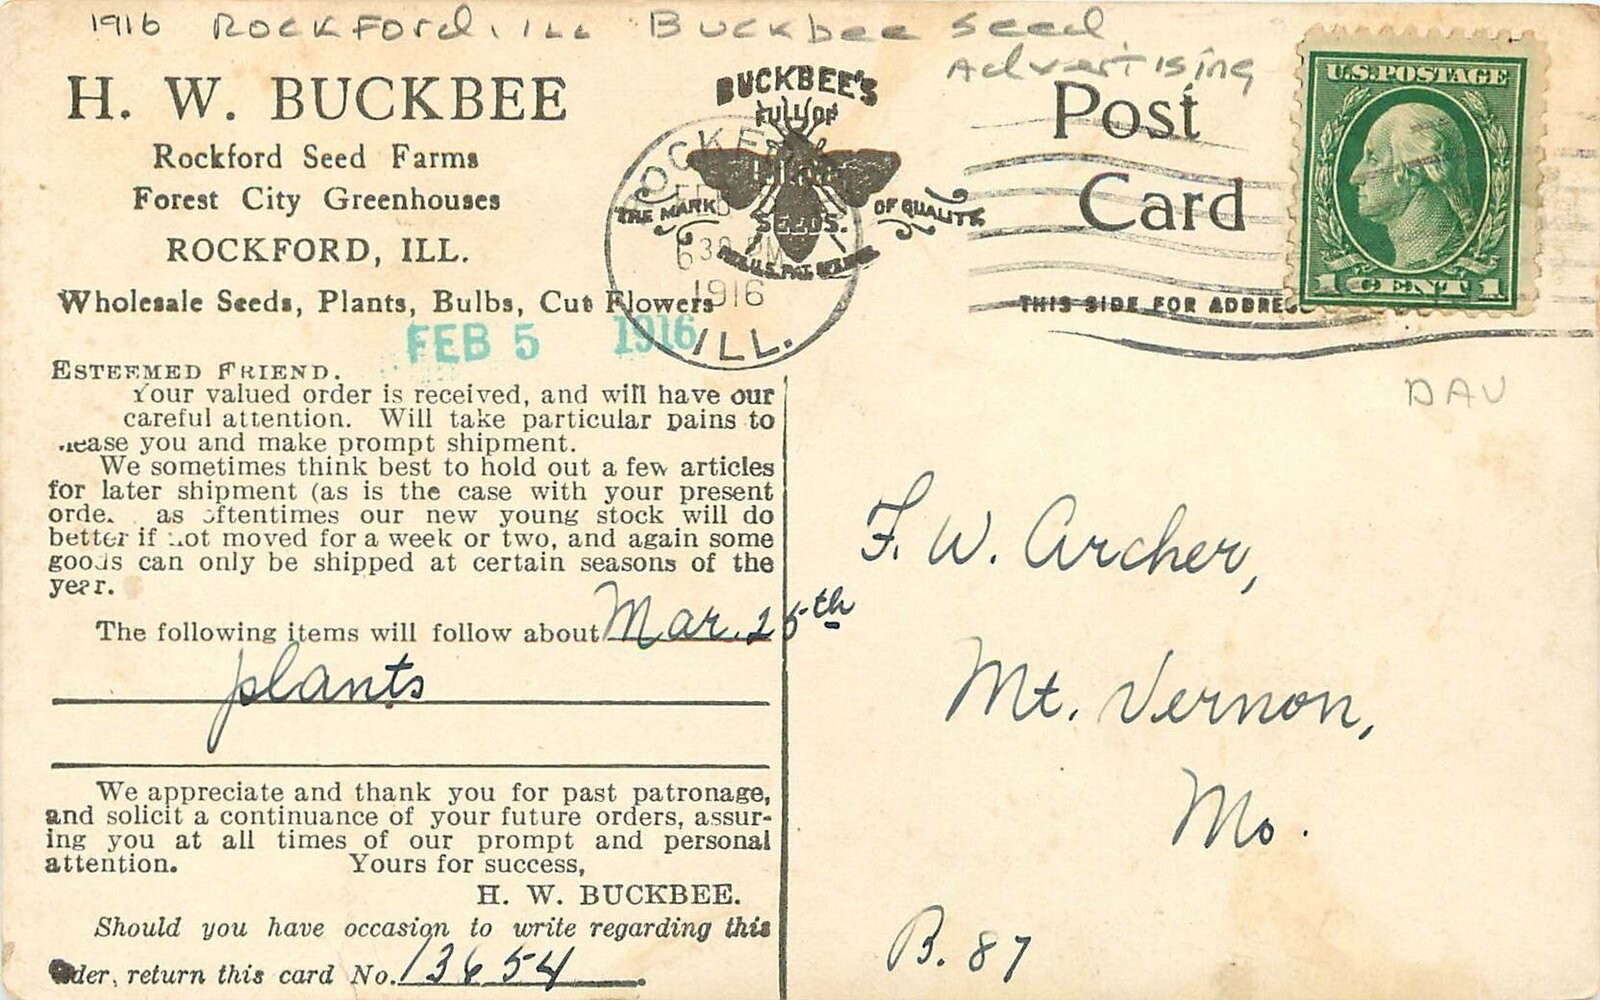 1916 Rockford, Ill Buckbee Seed
Advertising
H. W. BUCKBEE
Rockford Seed Farms
Forest City Greenhouses
ROCKFORD, ILL.
Wholesale Seeds, Plants, Bulbs, Cut Flowers
FEB 5 1916
BUCKBEE'S
FULL OF
LIFE
SEEDS.
THE MARK OF QUALITY
REG. U.S. PAT. OFFICE
ROCKFORD
FEB
630 PM
1916
ILL.
Post
Card
THIS SIDE FOR ADDRESS
U.S. POSTAGE
1 CENT 1
ESTEEMED FRIEND.
Your valued order is received, and will have our
careful attention. Will take particular pains to
please you and make prompt shipment.
We sometimes think best to hold out a few articles
for later shipment (as is the case with your present
orde. as oftentimes our new young stock will do
better if not moved for a week or two, and again some
goods can only be shipped at certain seasons of the
year.
The following items will follow about Mar. 25th
plants
We appreciate and thank you for past patronage,
and solicit a continuance of your future orders, assur-
ing you at all times of our prompt and personal
attention. Yours for success,
H. W. BUCKBEE.
Should you have occasion to write regarding this
order, return this card No. 13654.
DAV
F. W. Archer,
Mt. Vernon,
Mo.
B. 87